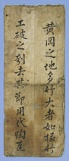 黃岡之地多竹大者如椽竹
工破之刳去其節用代陶瓦